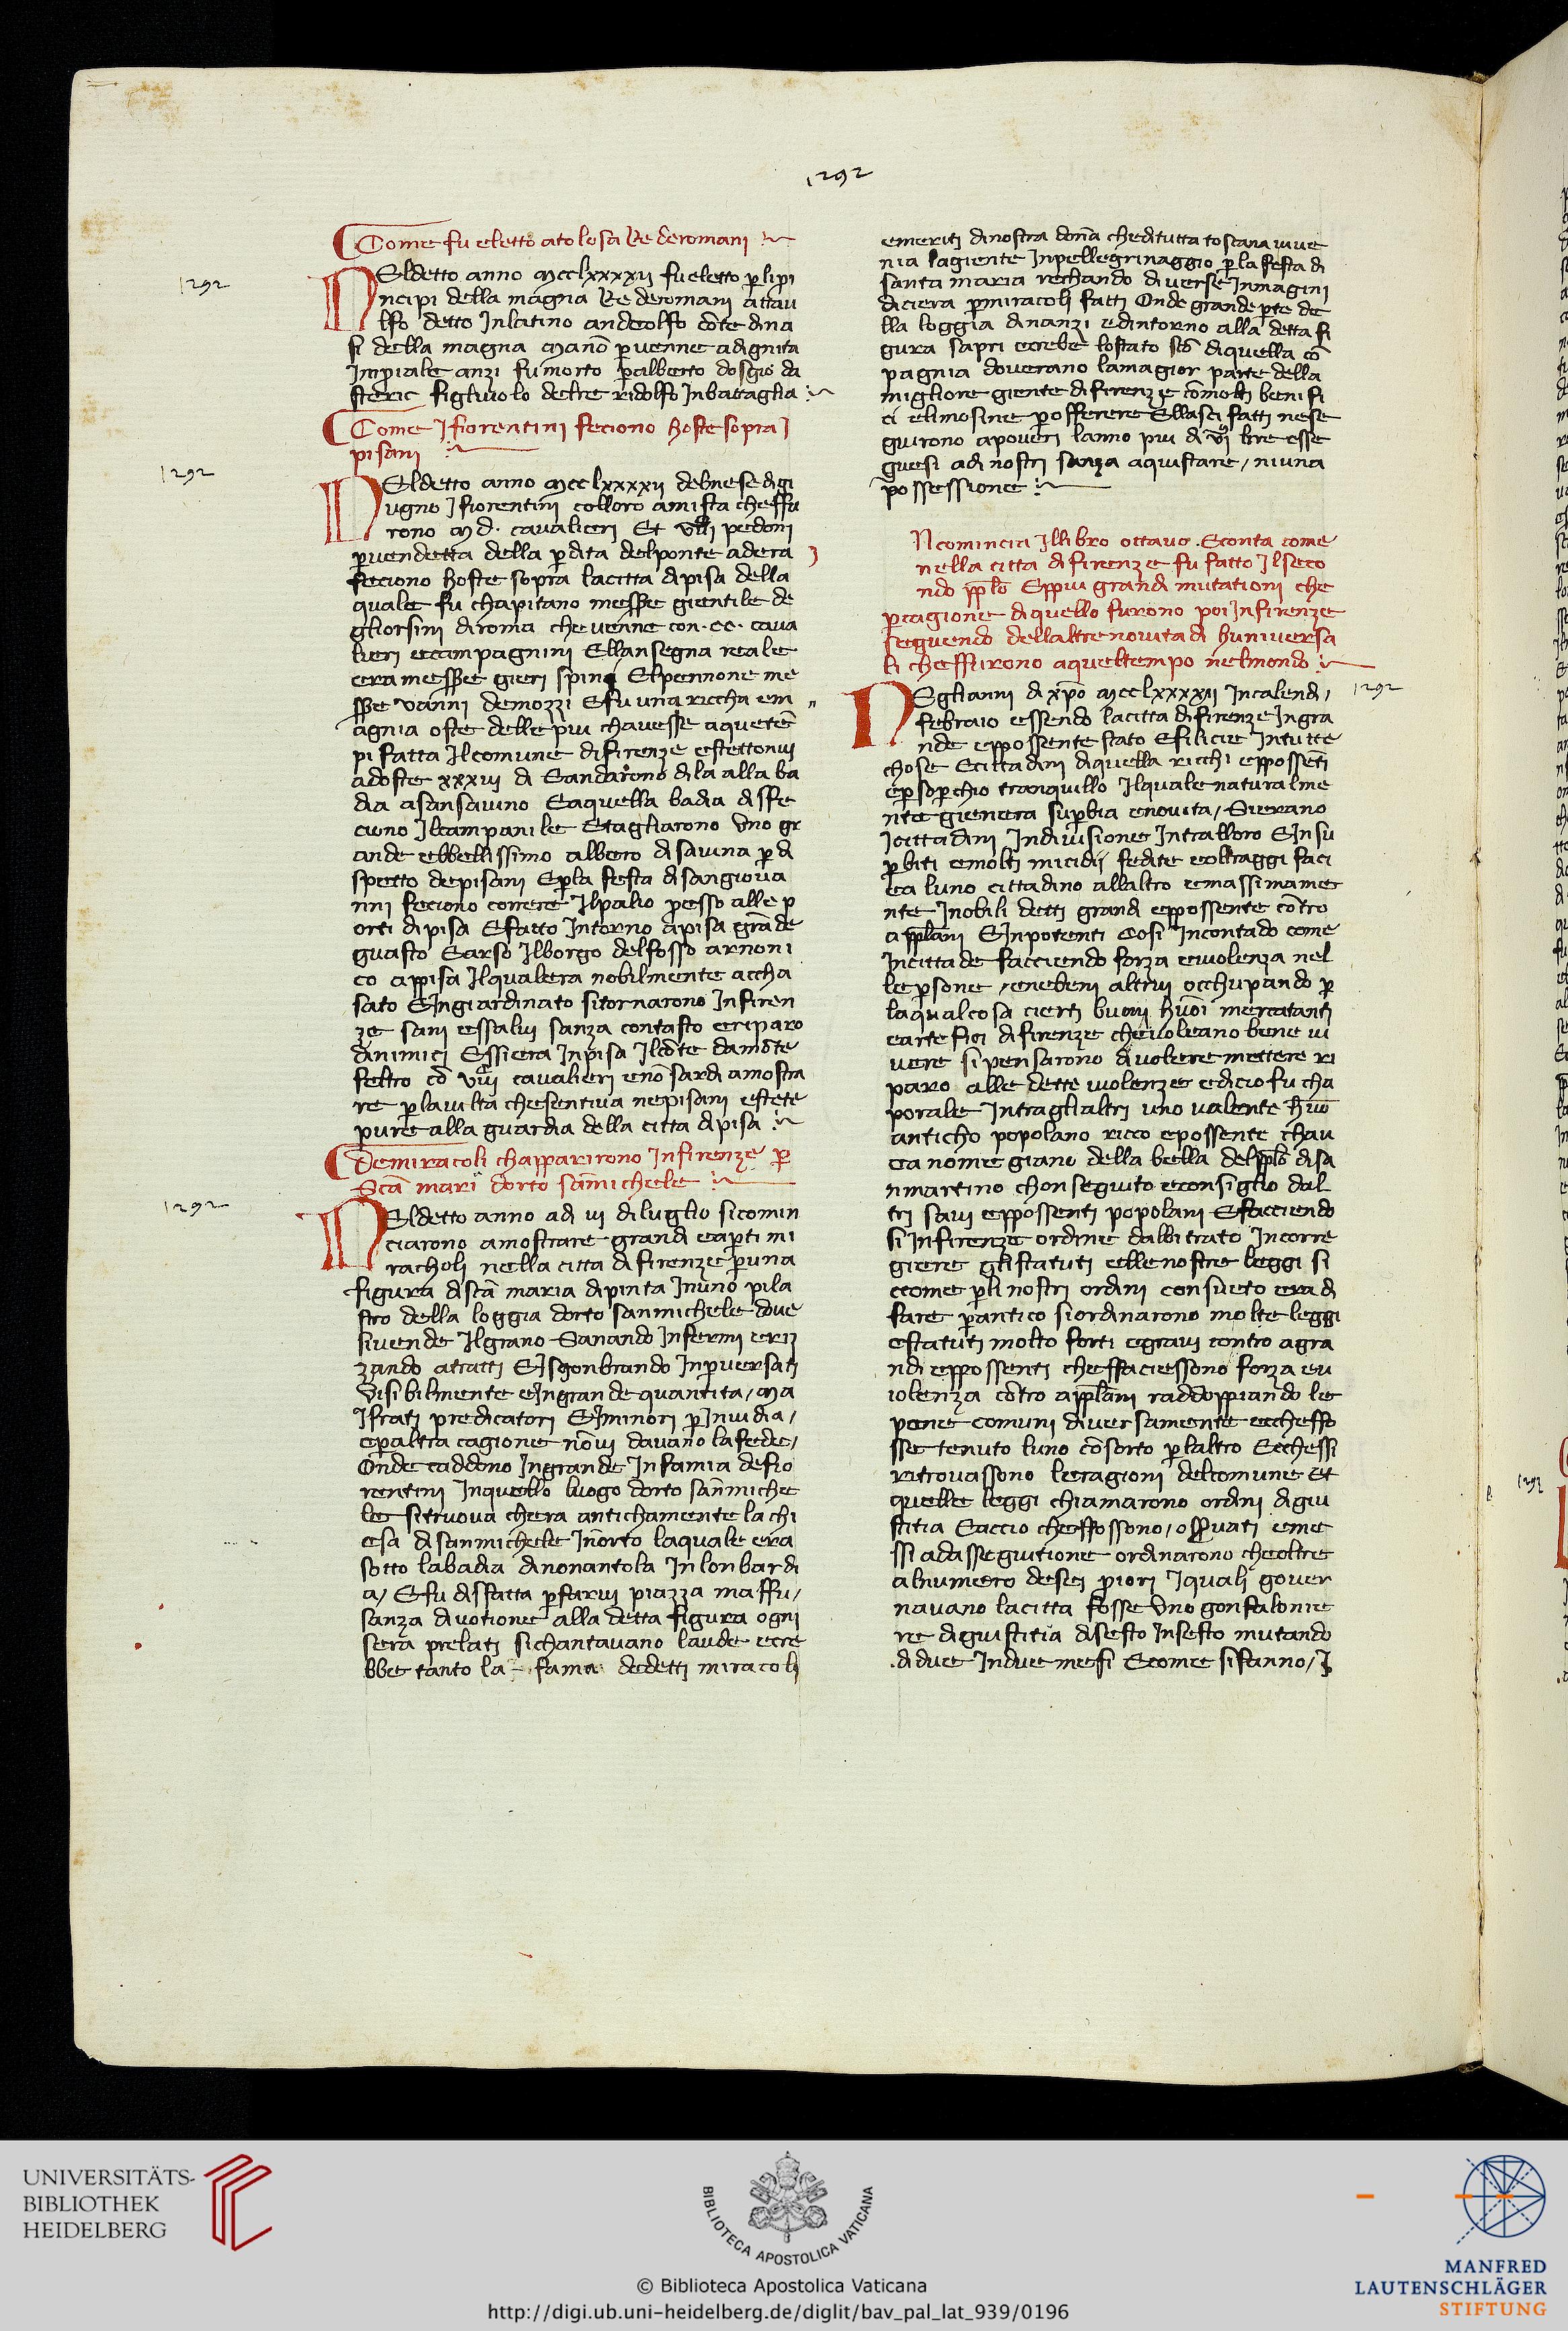 1292
Come fu eletto atolosa Re deromani
1292
NEldetto anno mcclxxxxii fu eletto p̲ lipi
ncipi della magna Re deromani attau
lfo detto Inlatino andeolfo cōte dina
si della magna manō p̲uenne adignita
Inpiale anzi fumorto p̲alberto dosgio da
steric figliuolo delre ridolfo Inbattaglia
Come Ifiorentini feciono hoste sopra I
pisani
1292
NEldetto anno mcclxxxxii delmese digi
ugno Ifiorentini colloro amista cheffu
rono m d. cavalieri Et viii pedoni
p̲uendetta della p̲dita delponte adera
feciono hoste sopra lacitta dipisa della
quale fu chapitano messe gientile de
gliorsini diroma che uenne con .cc. caua
lieri eccampagnini Ellansegna reale
era messe gieri spina Elpennone me
sse vanni demozzi Efu una riccha em
agnia oste delle piu chauesse aquetē
pi fatta Ilcomune difirenze estettonui
adoste xxxiii di Eandarono dila alla ba
dia asansauino Eaquella badia disfe
ciono Ilcampanile Etagliarono uno gr
ande ebbellissimo albero disauina p̲ di
spetto depisani Ep̲la festa disangioua
nni feciono correre Ilpalio presso alle p
orti dipisa Efatto Intorno apisa grāde
guasto Earso Ilborgo delfosso arnoni
co appisa Ilqualera nobilmente accha
sato EIngiardinato sitornarono Infiren
ze sani essalui sanza contasto eriparo
dinimici Essiera Inpisa Ilcōte damōte
feltro cō viii cavalieri enō sardi amostra
re p̲lauilta chesentiua nepisani estete
pure alla guardia della citta dipisa
Demiracoli chapparirono Infirenze p̲
Scā mari dorto sāmichele
1292
NEldetto anno adi iii diluglio sicomin
ciarono amostrare grandi eap̲ti mi
racholi nella citta difirenze p̲una
figura discā maria dipinta Inuno pila
stro della loggia dorto sanmichele doue
siuende Ilgrano Sanando Infermi eriz
zando atratti EIsgonbrando Inp̲uersati
Visibilmente eIngrande quantita, ma
Ifrati predicatori EIminori p̲Inuidia,
ep̲altra cagione nōui dauano la fede,
Onde caddono Ingrande Infamia defio
rentini Inquello luogo dorto sanmiche
le situoua chera antichamente lachi
esa disanmichele Inorto laquale era
sotto labadia dinonantola Inlonbardi
a, Efu disfatta p̲farui piazza maffu,
sanza diuotione alla detta figura ogni
sera prelati sichantauano laude ecre
bbe tanto la fama dedetti miracoli
emeriti dinostra donā cheditutta toscana uiue
nia lagiente Inpellegrinaggio p̲la festa di
santa maria rechando diuerse Inmagini
diciera p̲miracoli fatti Onde grande p̲te de
lla loggia dinanzi edintorno alla detta fi
gura sapri ecrebe lostato diquella cō
pagnia douerano lamagior parte della
migliore giente difirenze cōmolti benifi
ci elimosine p̲offerere Ellasci fatti nese
guirono apoueri lanno piu di vi lire esse
guesi adi nostri sanza aquistare, niuna
possessione
Ncomincia Illibro ottauo. Econta come
nella citta difirenze fu fatto Ilseco
ndo pplō Eppiu grandi mutationi che
p̲cagione diquello furono poi Infirenze
seguendo dellaltre nouita di huniuersa
li cheffurono aqueltempo nelmondo
1292
NEglianni di xpō mcclxxxxii Incalendi,
febraio essendo lacitta difirenze Ingra
nde eppossente stato Efilicie Intutte
chose Ecittadini diquella ricchi eppossēti
ep̲sop̲chio tranquillo Ilquale naturalme
nte gienera sup̲bia enouita, Sierano
Icittadini Indiuisione Intralloro EInsu
p̲biti emolti micidij fedite eoltraggi faci
ea luno cittadino allaltro emassimame
nte Inobili detti grandi eppossente cōtro
applāni EInpotenti Cosi Incontado come
Incitta de facciendo forza euiolenza nel
le p̲sone enebeni altrui occhupando p̲
laqualcosa cierti buoni huōi mercatanti
eartefici difirenze cheuoleano bene ui
uere sipensarono diuolere mettere ri
paro alle dette uiolenze ediciofu cha
porale Intraglialtri uno ualente huō
anticho popolano ricco epossente chau
ea nome giano della bella delpplō disa
nmartino chonseguito econsiglio dal
tri saui eppossenti popolani Efacciendo
si Infirenze ordine dalbitrato Incorre
giere glistatuti ellenostre leggi si
ccome p̲li nostri ordini consueto era di
fare p̲antico siordinarono molte leggi
estatuti molto forti egraui contro agra
ndi eppossenti cheffaciessono forza eu
iolenza cōtro applāni raddoppiando le
pene comuni diuersamente ecchesso
sse tenuto luno cōsorto p̲laltro Ecchessi
ritrouassono leragioni delcomune Et
quelle leggi chiamarono ordini digiu
stitia Eaccio cheffossono, osservati eme
ssi adasseguitione ordinarono cheoltre
alnumero desei priori Iquali gouer
nauano lacitta fosse Uno gonfalonie
re digiustitia disesto Insesto mutando
.didue Indue mesi Ecome sifanno, I
1292
UNIVERSITÄTS-
BIBLIOTHEK
HEIDELBERG
BIBLIOTECA APOSTOLICA VATICANA
© Biblioteca Apostolica Vaticana
http://digi.ub.uni-heidelberg.de/diglit/bav_pal_lat_939/0196
MANFRED
LAUTENSCHLÄGER
STIFTUNG